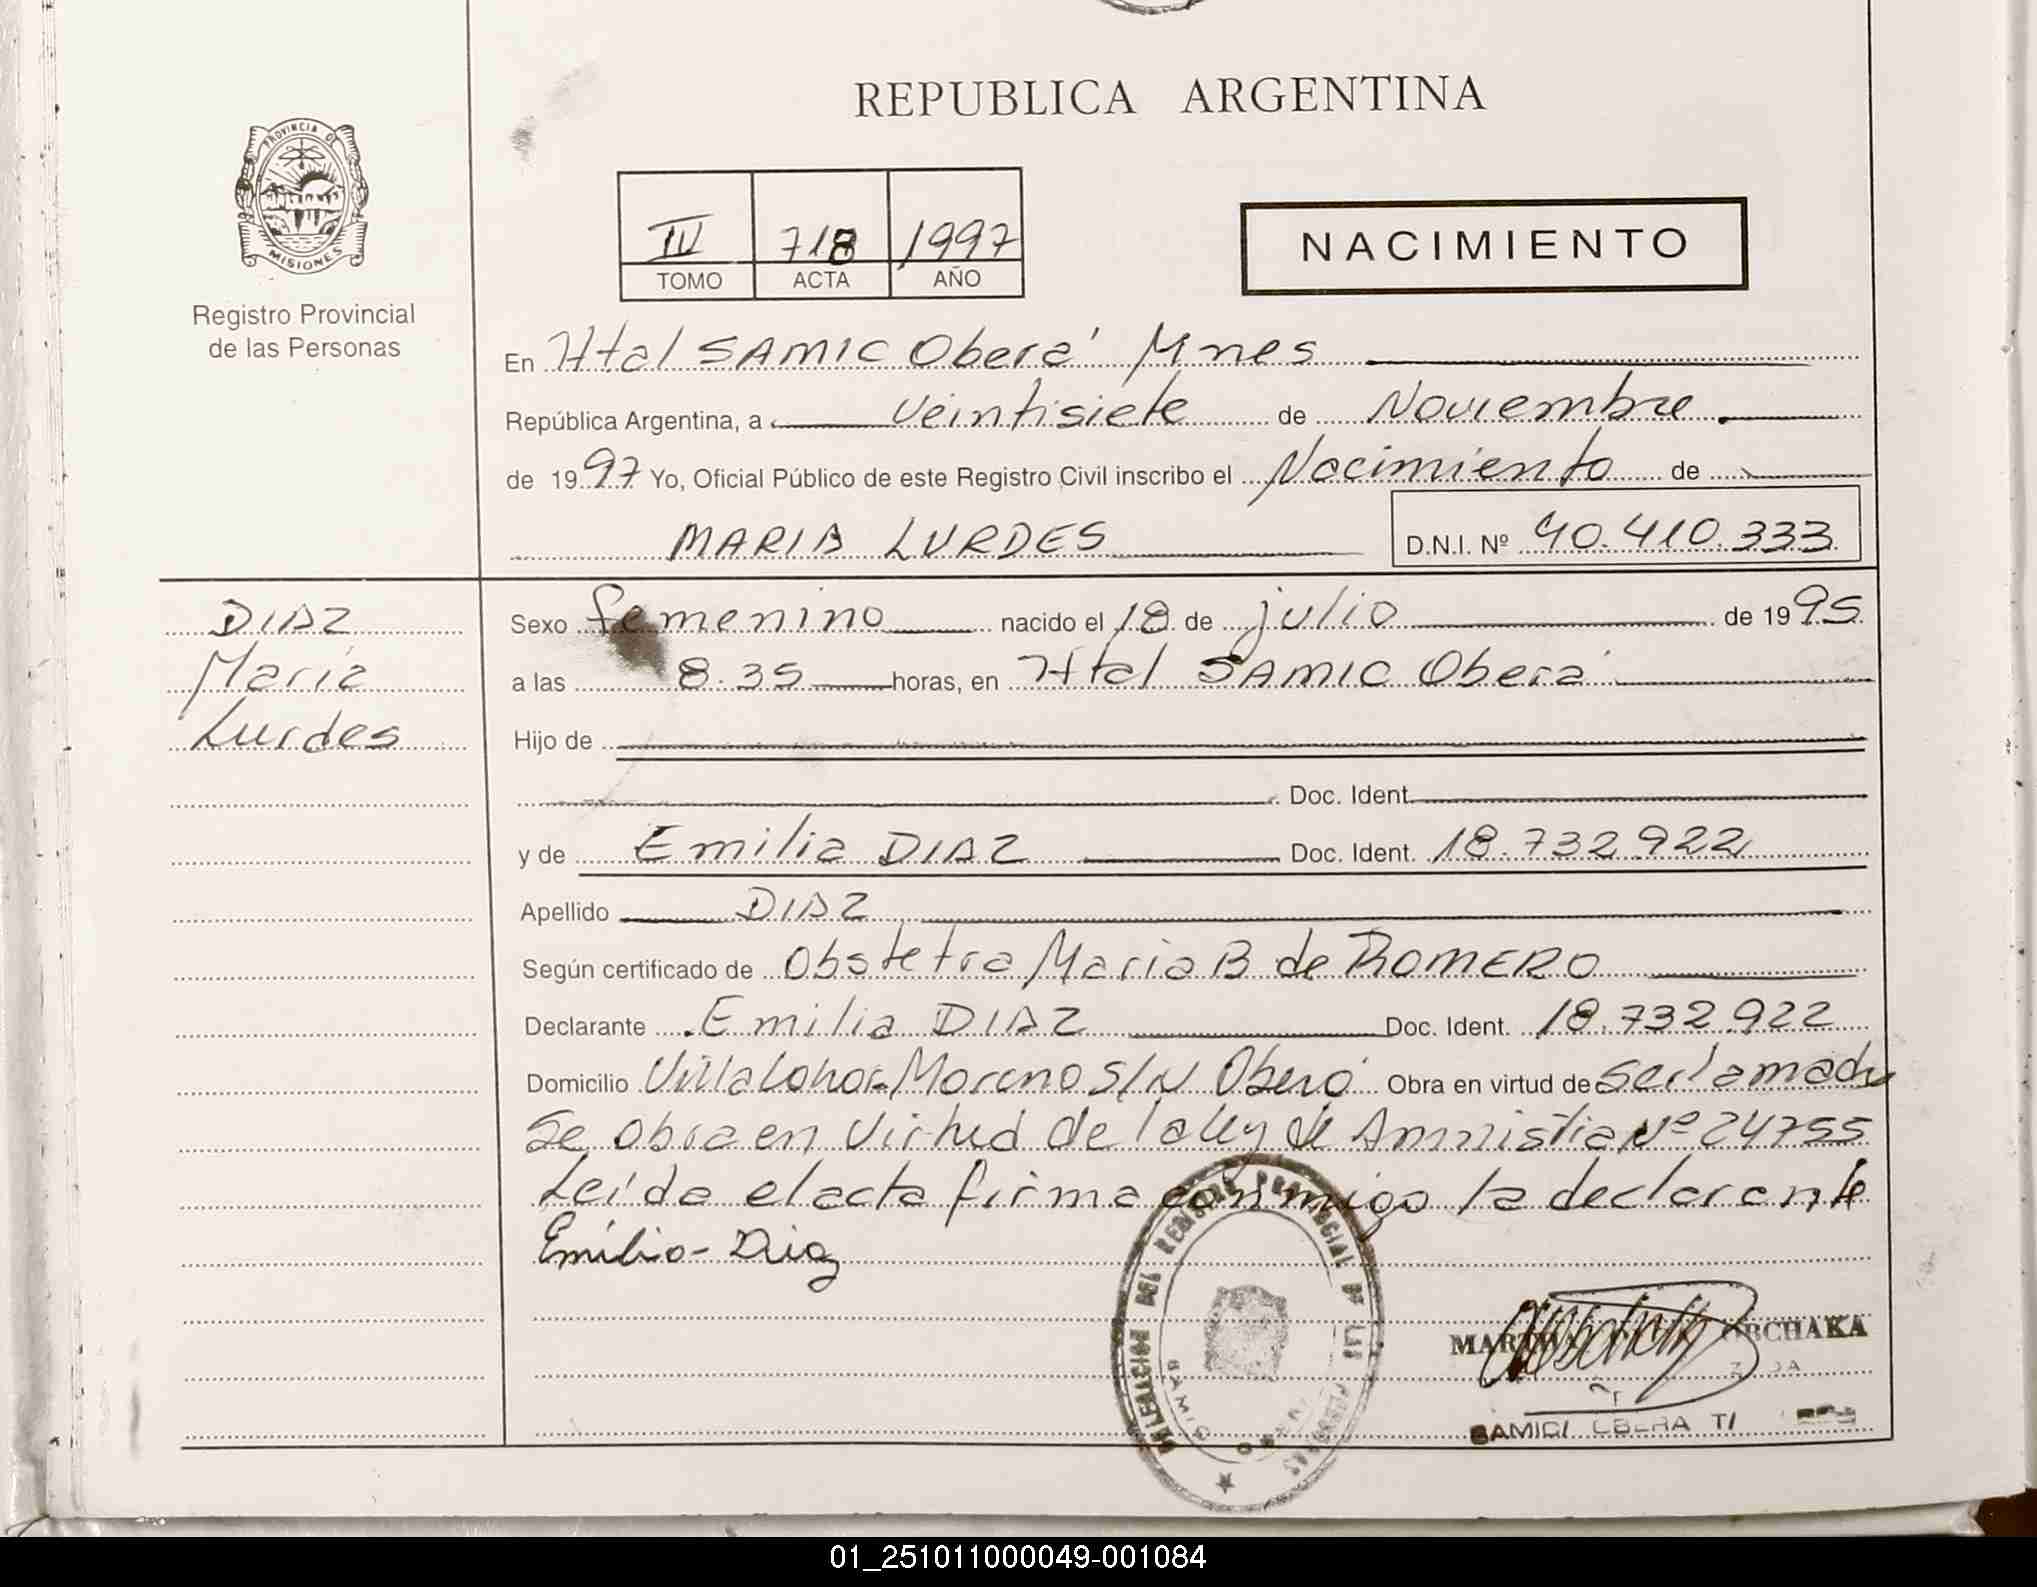 REPUBLICA ARGENTINA
PROVINCIA DE
MISIONES
Registro Provincial
de las Personas
718 1997
TOMO ACTA AÑO
NACIMIENTO
En Htal SAMIC Oberá Mnes
República Argentina, a veintisiete de Noviembre
de 1997 Yo, Oficial Público de este Registro Civil inscribo el Nacimiento de
MARIA LURDES D.N.I. Nº 40.410.333
DIAZ
Maria
Lurdes
Sexo femenino nacido el 18 de julio de 1995
a las 8.35 horas, en Htal SAMIC Oberá
Hijo de
Doc. Ident.
y de Emilia DIAZ Doc. Ident. 18.732.922
Apellido DIAZ
Según certificado de Obstetra Maria B de ROMERO
Declarante Emilia DIAZ Doc. Ident. 18.732.922
Domicilio Moreno S/N Oberá Obra en virtud de ser la madre
Se obra en virtud de la ley de Amnistia Nº 24755
Leída el acta firma conmigo la declarante
Emilia - Diaz
DELEGACION DEL REGISTRO PROVINCIAL DE LAS PERSONAS
SAMIC
01_251011000049-001084